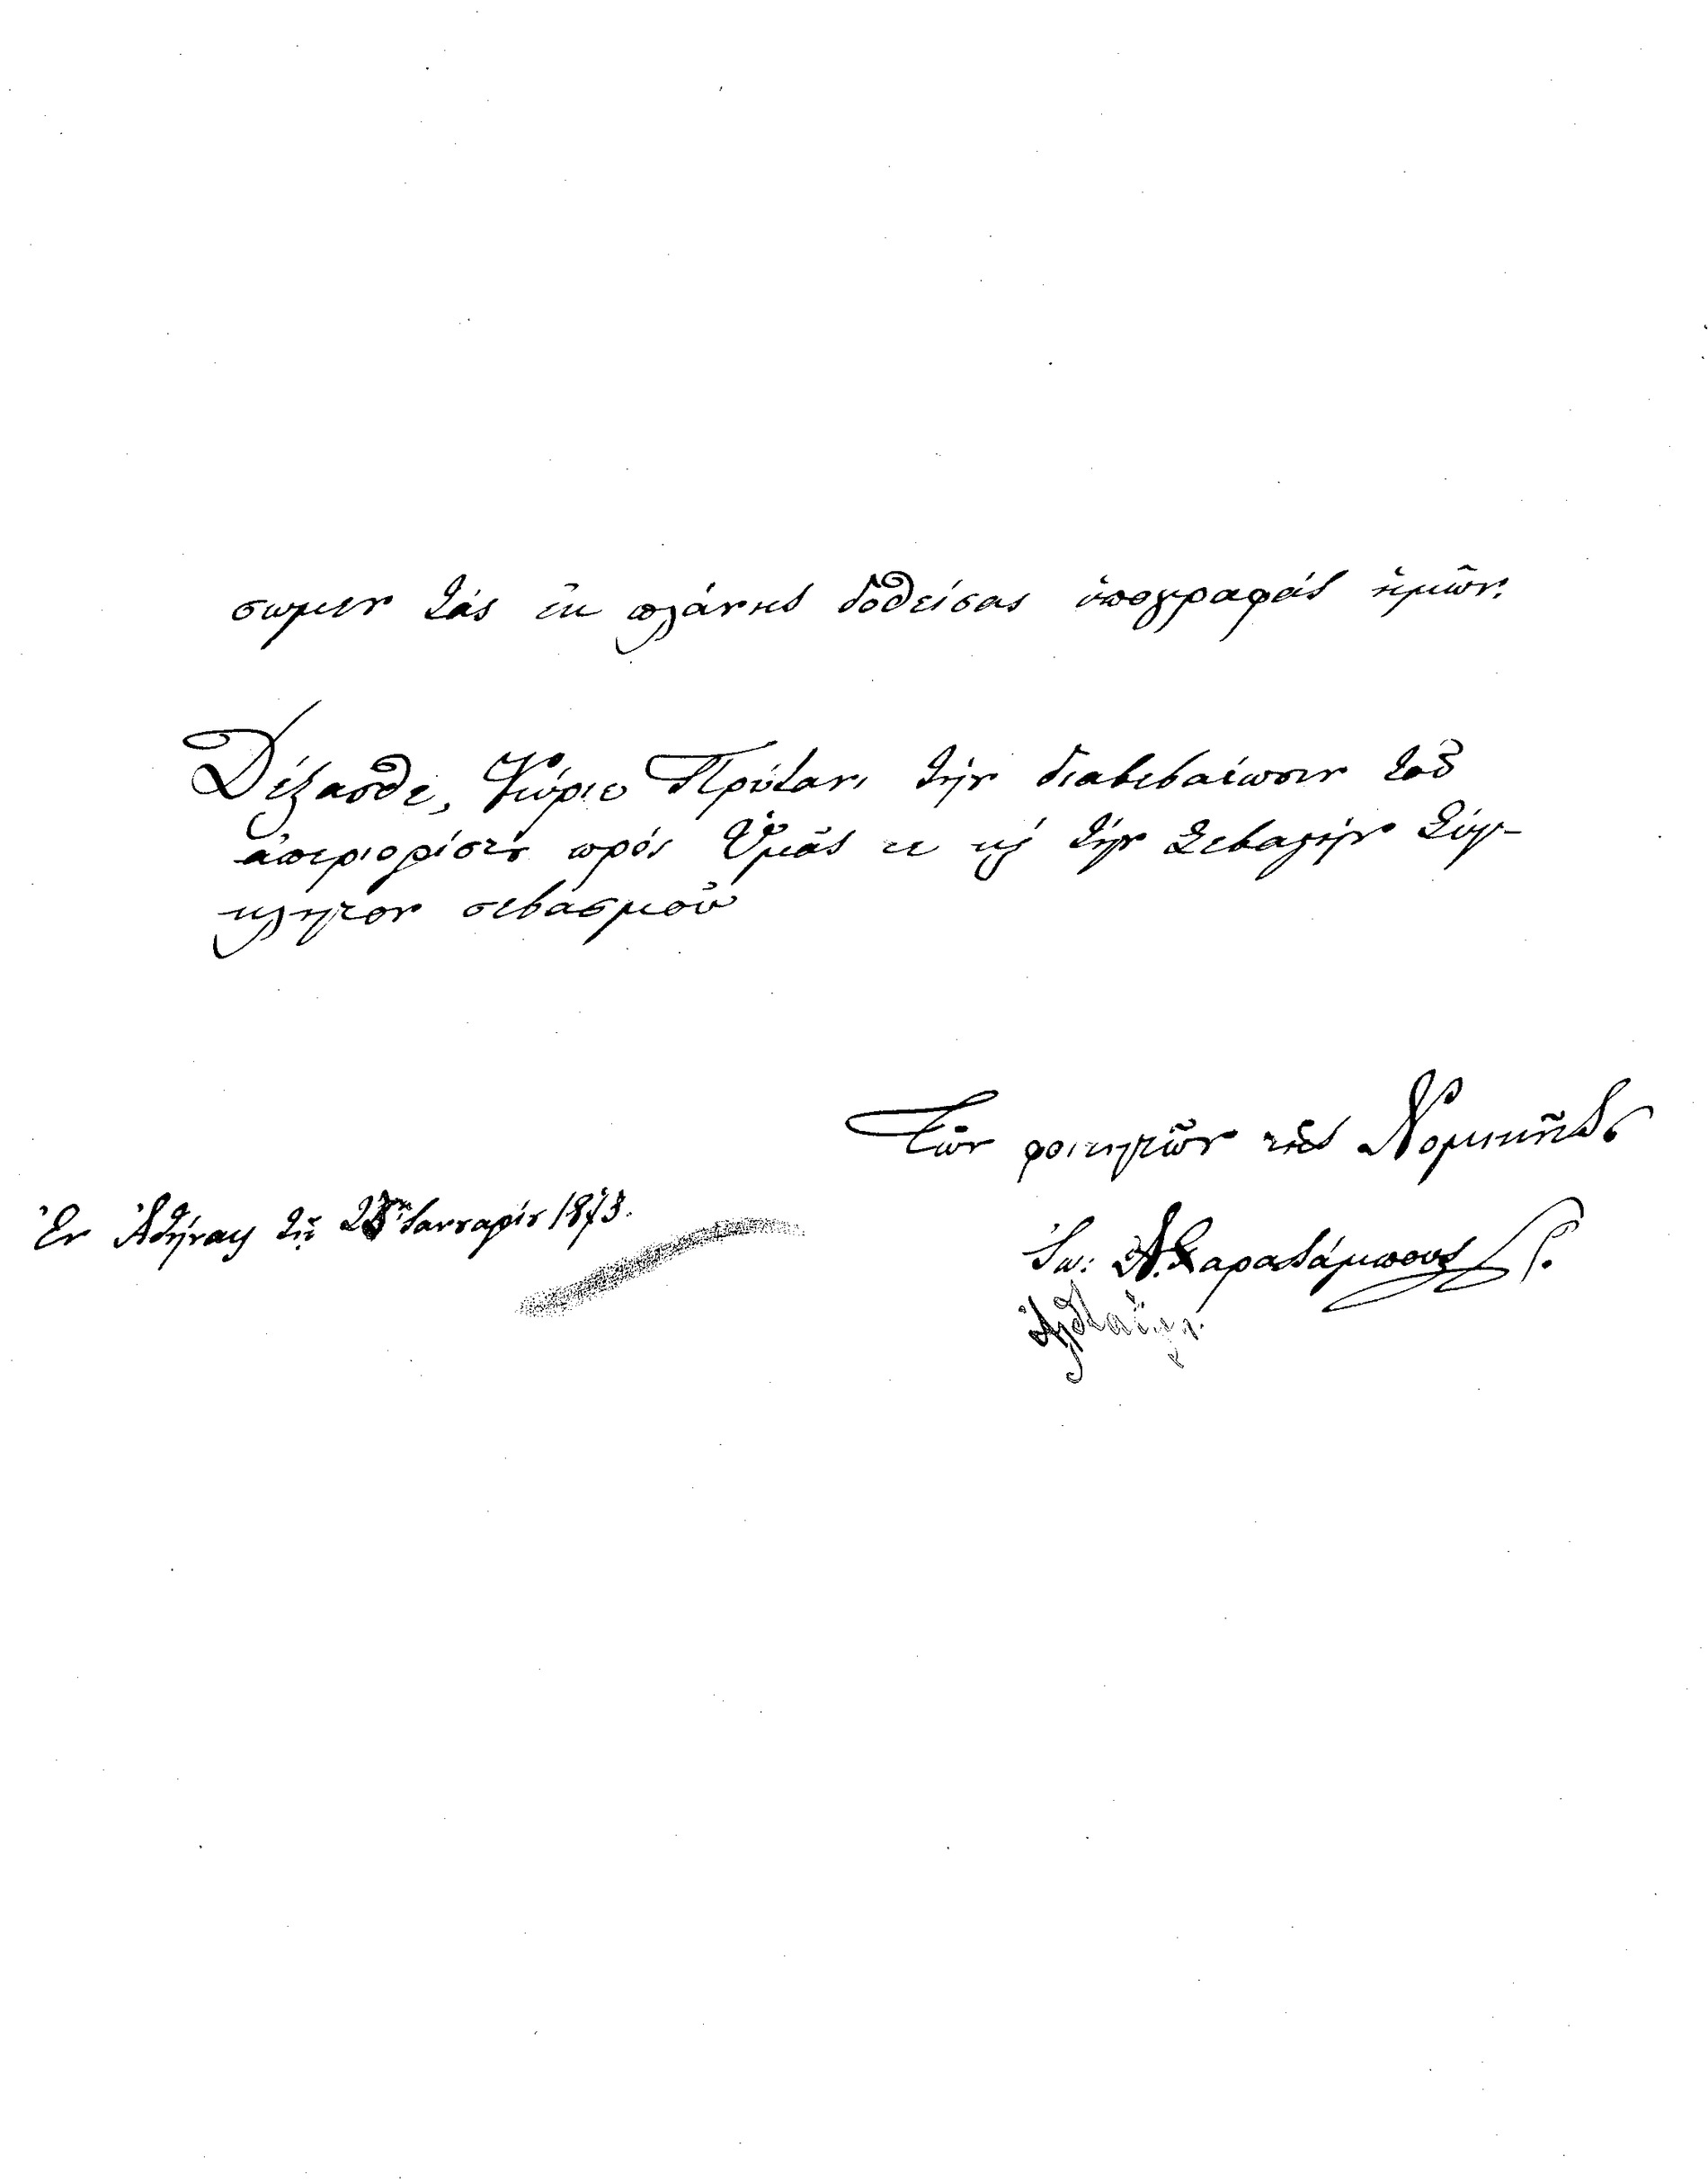 σωμεν τάς ἐκ πλάνης δοθείσας ὑπογραφάς ἡμῶν.
Δέξασθε, Κύριε Πρύτανι τήν διαβεβαίωσιν τοῦ
ἀπεριορίστου πρός Ὑμᾶς τε κὴ τήν Σεβαστήν Σύγ-
κλητον σεβασμοῦ
Τῶν φοιτητῶν τῆς Νομικῆς
Ἐν Ἀθήναις τῇ Ἰανουαρίου 1873.
Ἰω: Α. Χαραλάμπους